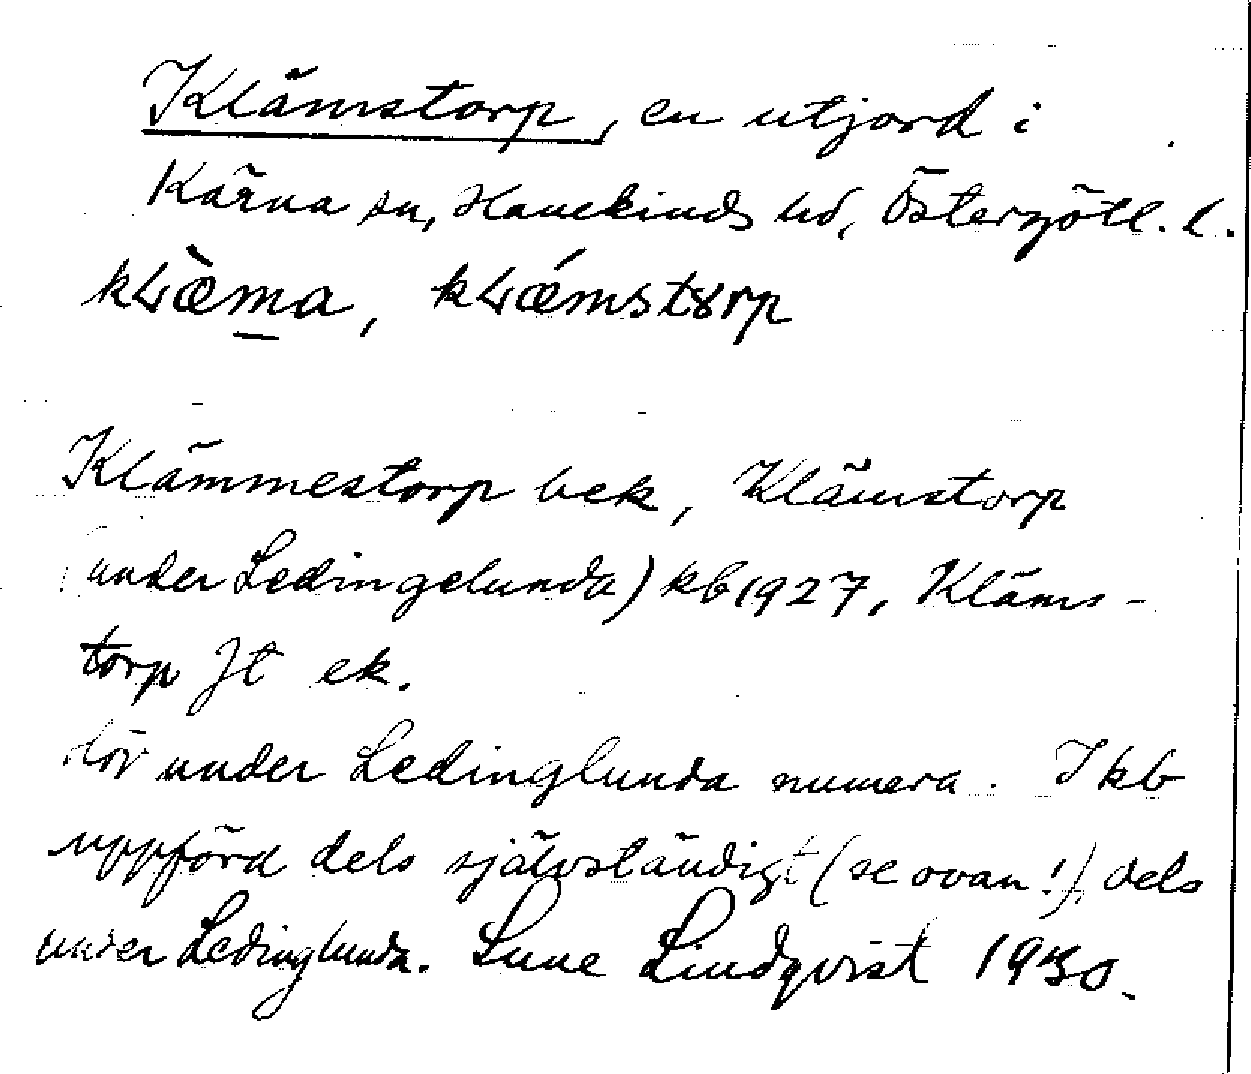 Klämstorp, en utjord i
Kärna sn, Hanekinds hd, Östergötl. l.
klæ̀ma, klǽmstorp
Klämmestorp bek, Klämstorp
(under Ledingelunda) kb 1927, Kläms-
torp Jt ek.
Hör under Ledinglunda numera. I kb
uppförd dels självständigt (se ovan!), dels
under Ledinglunda. Sune Lindqvist 1930.